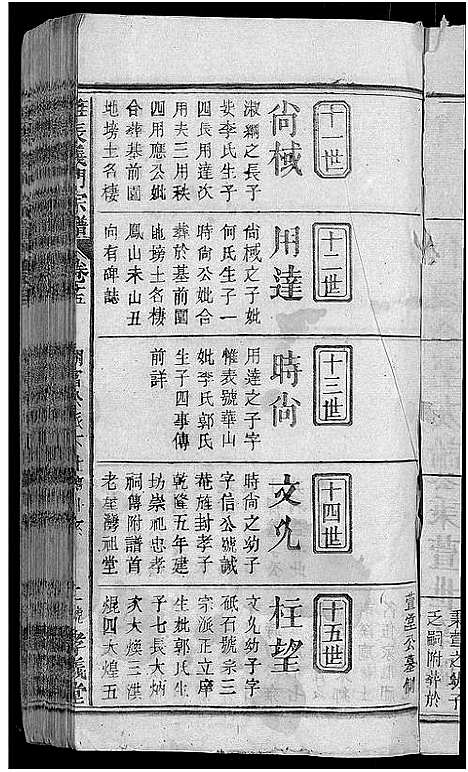 十一世
尚棫
淑綱之長子
妣李氏生子
四長用達次
用夫三用秩
四用應公妣
合葬基前園
地塝土名棲
十二世
用達
尚棫之子妣
何氏生子一
時尚公妣合
葬於基前園
地塝土名棲
鳳山未山丑
向有碑誌
十三世
時尚
用達之子字
惟表號華山
妣李氏郭氏
生子四事傳
前詳
十四世
文允
時尚之幼子
字信公號誠
菴旌封孝子
乾隆五年建
坊崇祀忠孝
祠傳附譜首
老屋灣祖堂
十五世
柱望
文允幼子字
砥石號宗三
宗派正立庠
生妣郭氏生
子七長大炳
次大煐三漢
焜四大煌五
義門宗譜
孝義堂
萱堂公墓側
秉萱之幼子
乏嗣附葬於